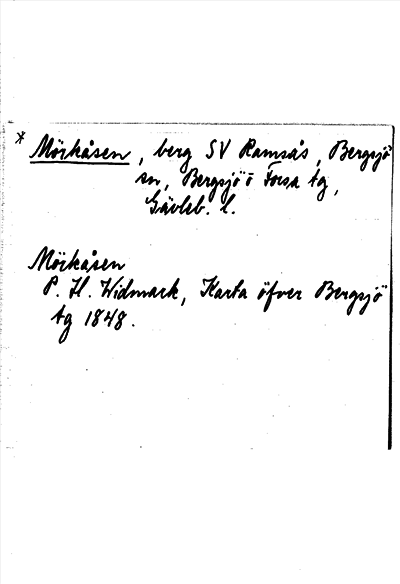 * Mörkåsen, berg SV Ramsås, Bergsjö
sn, Bergsjö o Forsa tg,
Gävleb. l.
Mörkåsen
P. H. Widmark, Karta öfver Bergsjö
tg 1848.